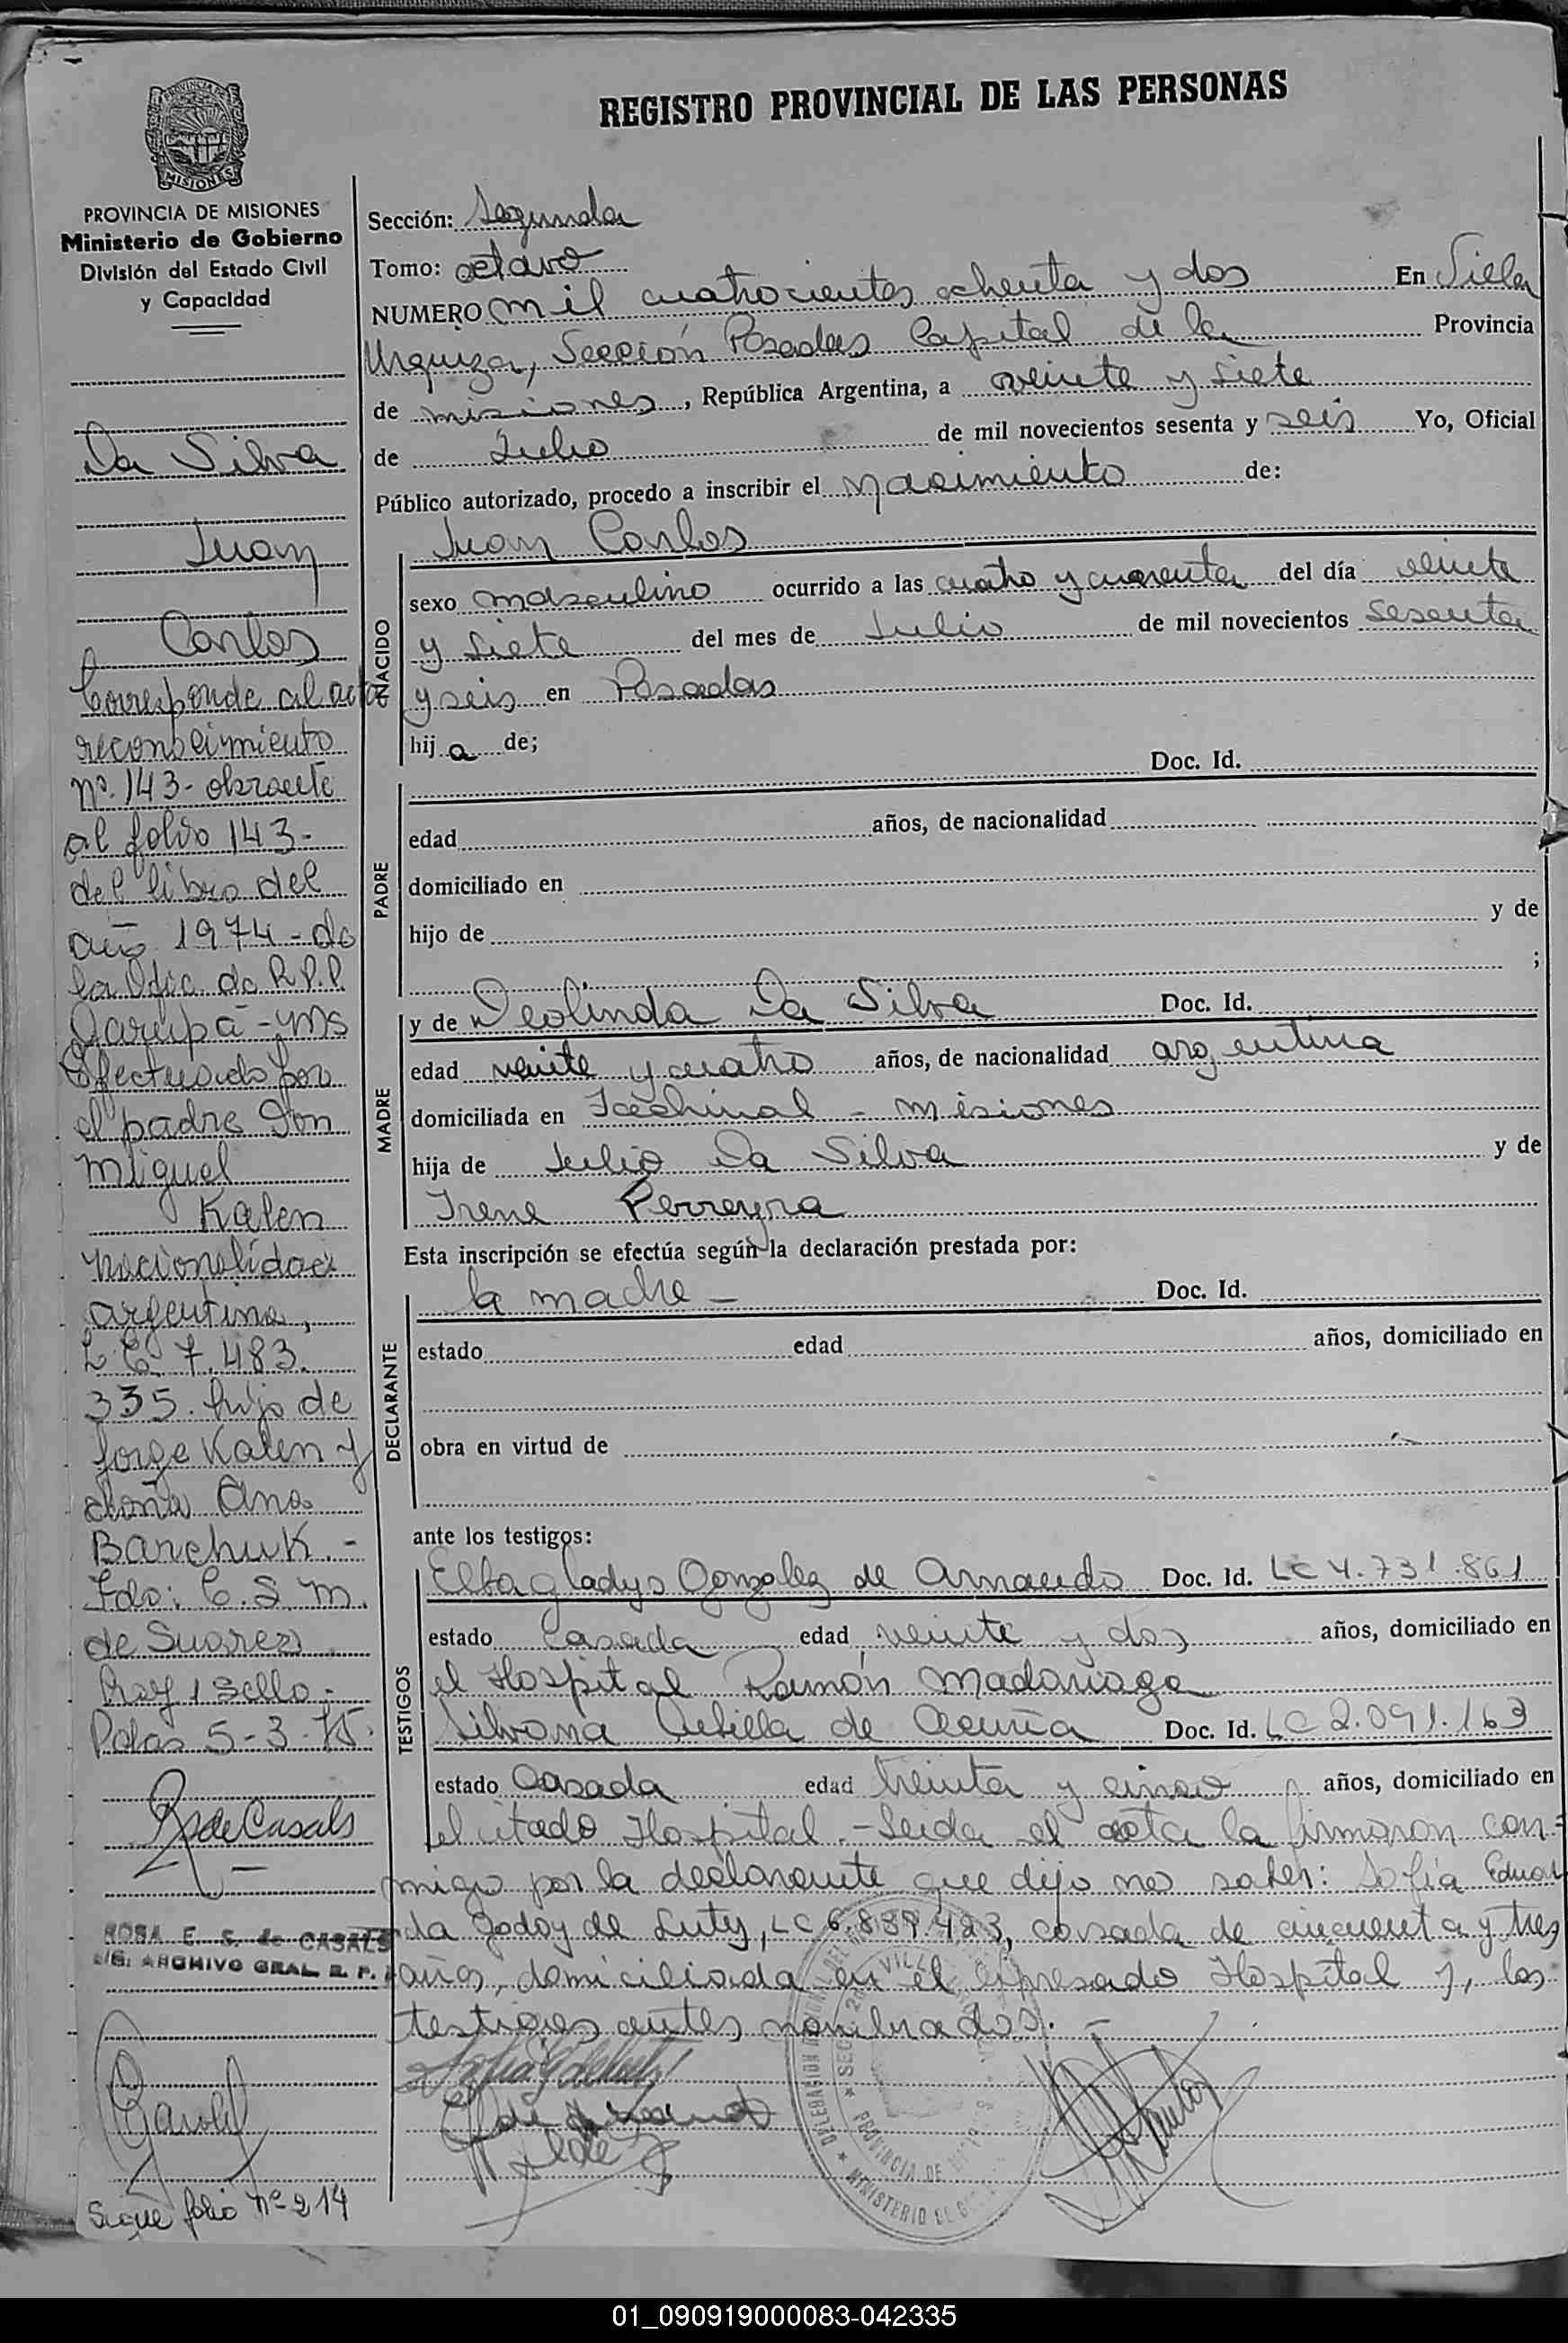 REGISTRO PROVINCIAL DE LAS PERSONAS
MISIONES
PROVINCIA DE MISIONES
Ministerio de Gobierno
División del Estado Civil
y Capacidad
Da Silva
Juan
Carlos
Corresponde al acta
reconocimiento
nº 143 - obrante
al folio 143 -
del libro del
año 1974 - de
la Ofic. de R.P.P.
Garupá - Mns
Efectuado por
el padre Don
Miguel
Kalen
nacionalidad
argentina,
L E 7.483.
335. hijo de
Jorge Kalen y
doña Ana
Barchuk. -
Fdo: C. S. M.
de Suarez
Hay 1 Sello -
Pdas 5-3-75.
R s de Casals
ROSA E. S. de CASALS
ARCHIVO GRAL R. P. P.
Sigue folio nº 214
Sección: Segunda
Tomo: octavo
NUMERO mil cuatrocientos ochenta y dos En Villa
Urquiza, Sección Posadas Capital de la Provincia
de misiones, República Argentina, a veinte y siete
de Julio de mil novecientos sesenta y seis Yo, Oficial
Público autorizado, procedo a inscribir el nacimiento de:
NACIDO
Juan Carlos
sexo masculino ocurrido a las cuatro y cuarenta del día veinte
y siete del mes de Julio de mil novecientos sesenta
y seis en Posadas
hij a de;
Doc. Id.
PADRE
edad años, de nacionalidad
domiciliado en
hijo de y de
;
MADRE
y de Deolinda Da Silva Doc. Id.
edad veinte y cuatro años, de nacionalidad argentina
domiciliada en Itachinal - misiones
hija de Julio Da Silva y de
Irene Perreyra
Esta inscripción se efectúa según la declaración prestada por:
DECLARANTE
la madre - Doc. Id.
estado edad años, domiciliado en
obra en virtud de
ante los testigos:
TESTIGOS
Elba Gladys Gonzalez de Armando Doc. Id. LC 4.731.861
estado Casada edad veinte y dos años, domiciliado en
el Hospital Ramón Madariaga
Silvana de Acuña Doc. Id. LC 2.091.163
estado Casada edad treinta y cinco años, domiciliado en
el citado Hospital.- Leida el acta la firmaron con-
migo por la declarante que dijo no saber: Sofía Eduar
da Godoy de Luty, LC 6.839.423, casada de cincuenta y tres
años, domiciliada en el expresado Hospital y, los
testigos antes nombrados. -
PROVINCIA DE
MINISTERIO DE
01_090919000083-042335